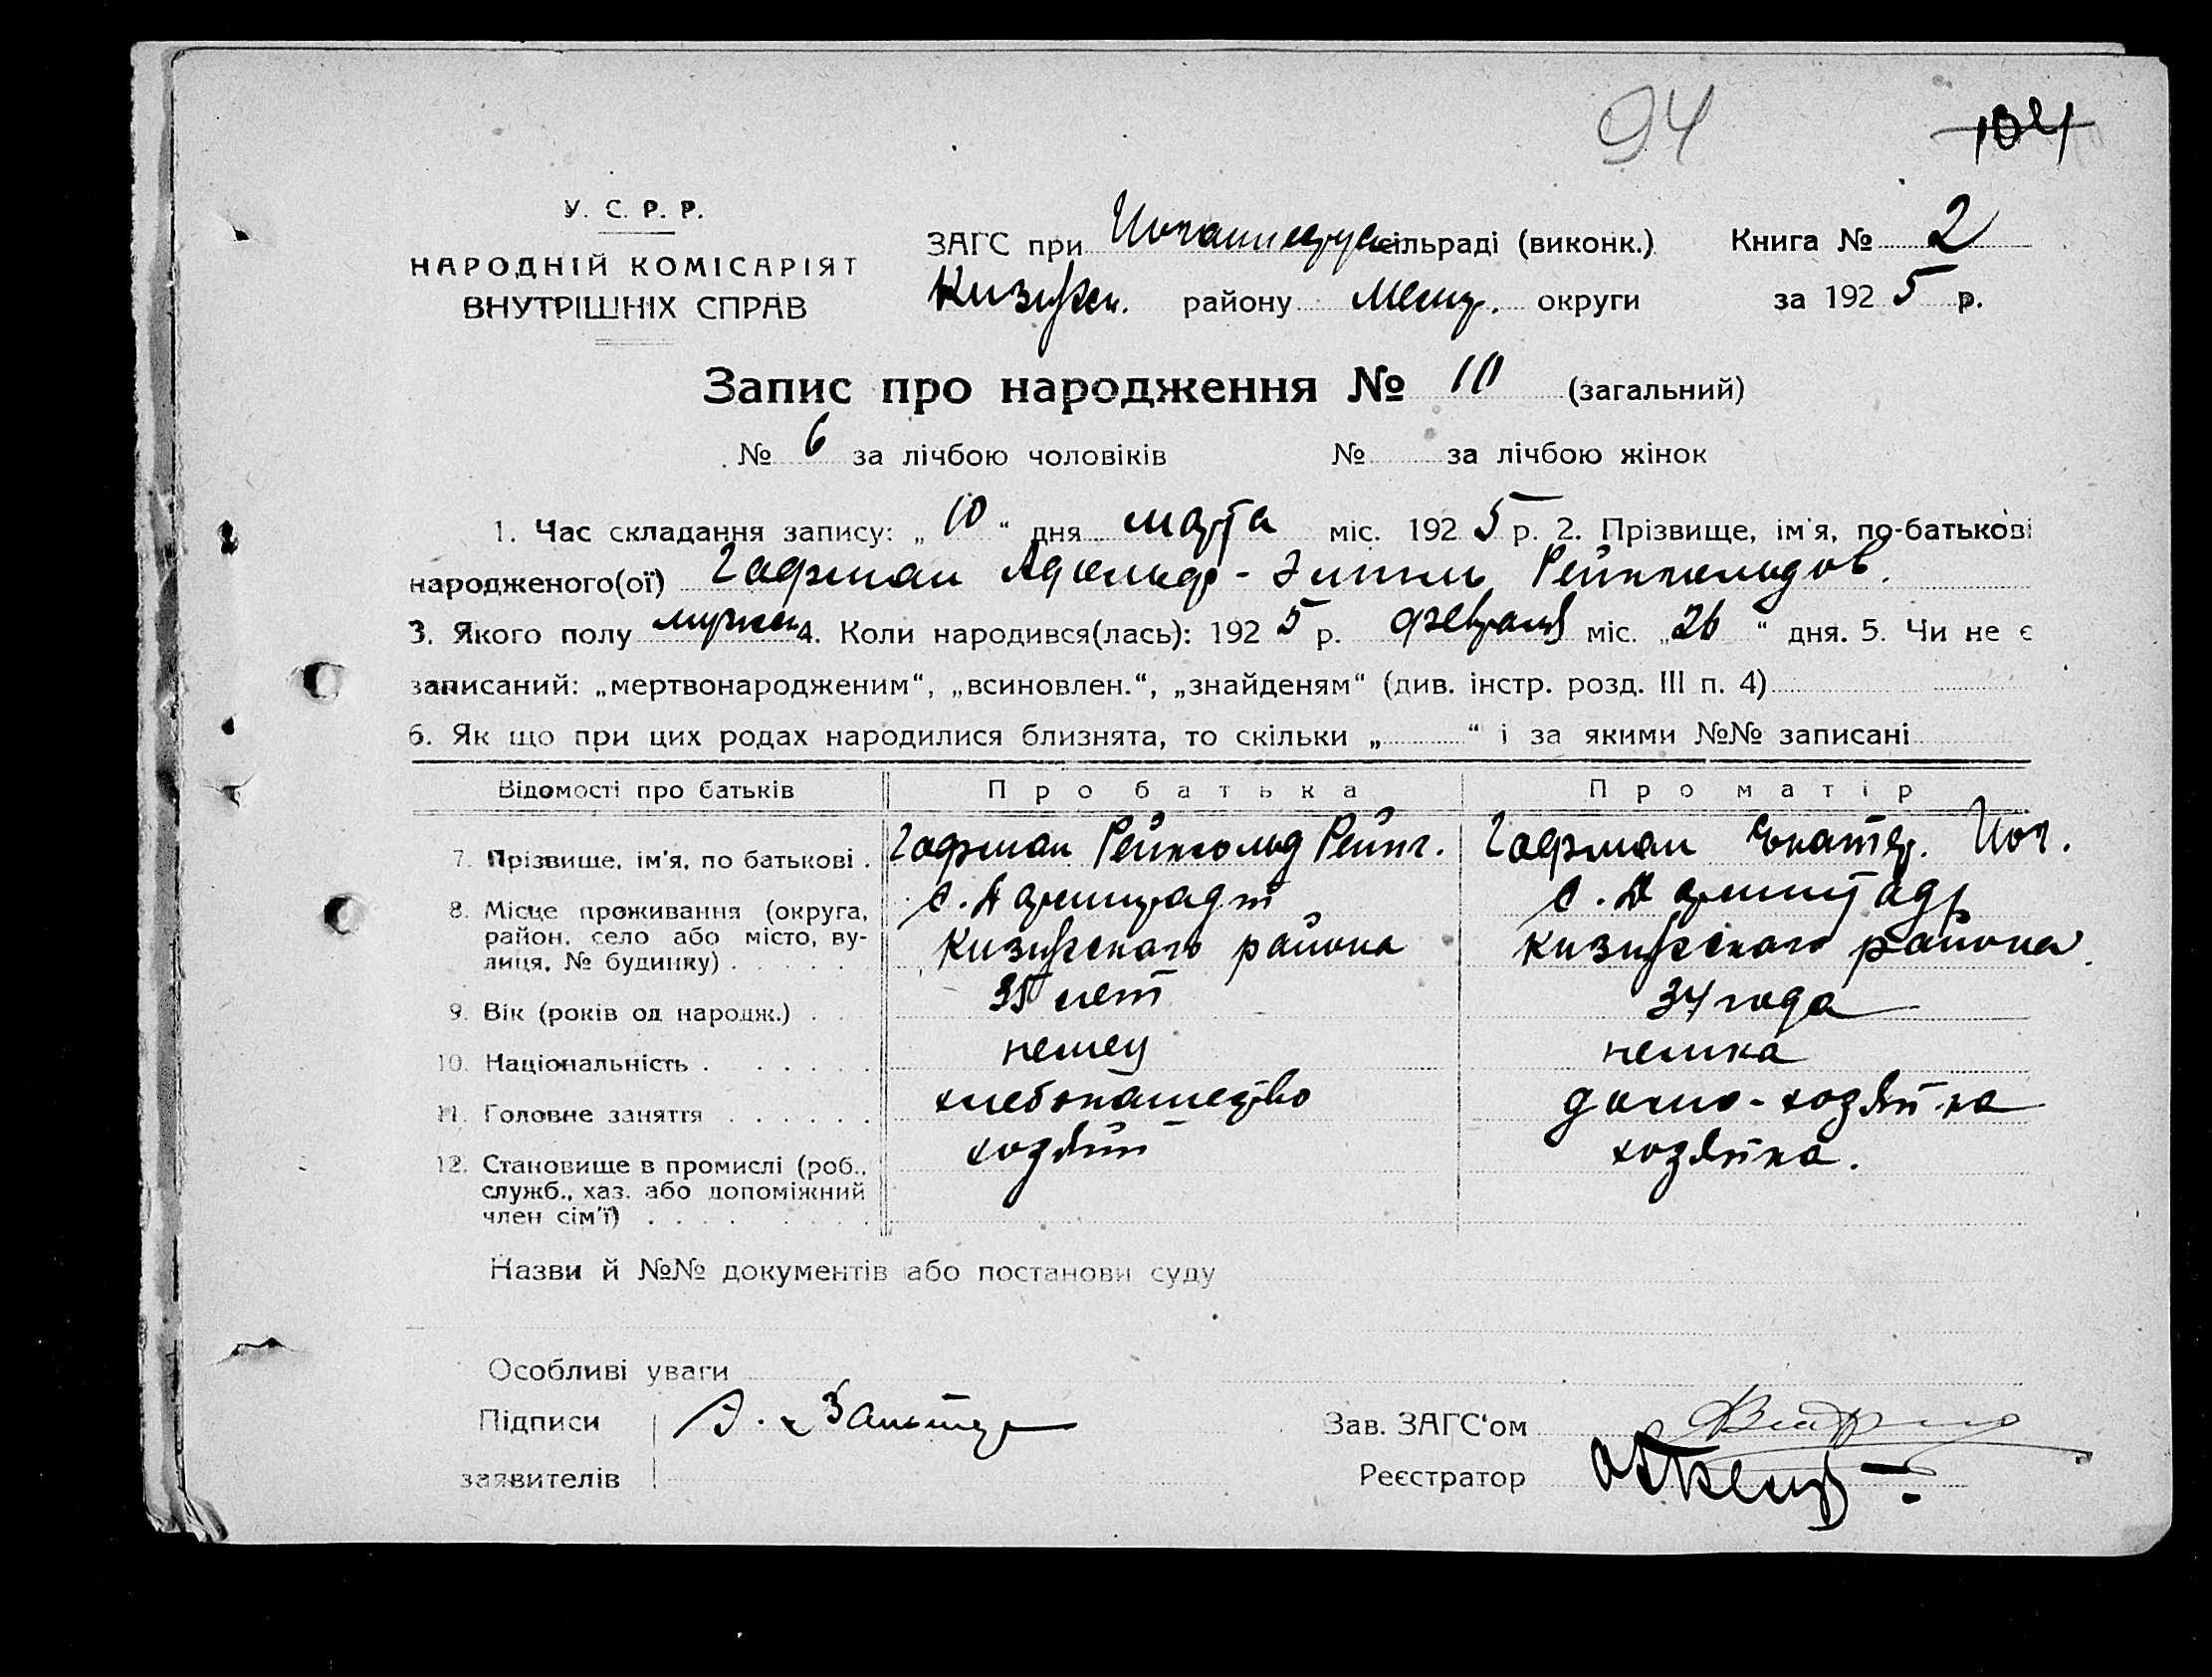 94
104
У. С. Р. Р.
НАРОДНІЙ КОМІСАРІЯТ
ВНУТРІШНІХ СПРАВ
ЗАГС при сільраді (виконк.) Книга № 2
району округи за 1925 р.
Запис про народження № 10 (загальний)
№ 6 за лічбою чоловіків № за лічбою жінок
1. Час складання запису: „10“ дня марта міс. 1925 р. 2. Прізвище, ім'я, по-батькові
народженого(ої) Гофман Адольф-Эмиль Рейнгольдов.
3. Якого полу мужск 4. Коли народився(лась): 1925 р. февраля міс. „26“ дня. 5. Чи не є
записаний: „мертвонародженим“, „всиновлен.“, „знайденям“ (див. інстр. розд. III п. 4)
6. Як що при цих родах народилися близнята, то скільки „ “ і за якими №№ записані
Відомості про батьків Про батька Про матір
7. Прізвище, ім'я, по батькові . Гофман Рейнгольд Рейнг. Гофман Екатер. Иог.
8. Місце проживання (округа, район, село або місто, вулиця, № будинку) . с. Дармштадт района с. Дармштадт района
9. Вік (років од народж.) . 35 лет 34 года
10. Національність . немец немка
11. Головне заняття . хлебопашество домо-хозяйка
12. Становище в промислі (роб., служб., хаз. або допоміжний член сім'ї) . хозяин хозяйка.
Назви й №№ документів або постанови суду
Особливі уваги
Підписи заявителів
Зав. ЗАГС'ом
Реєстратор